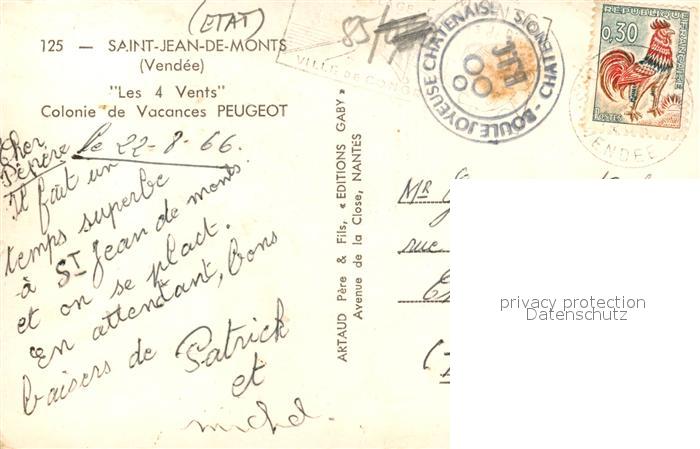 (ETAT)
125 — SAINT-JEAN-DE-MONTS
(Vendée)
"Les 4 Vents"
Colonie de Vacances PEUGEOT
85/
VILLE DE
BOULE JOYEUSE CHATENAISE
CHATENOIS
RÉPUBLIQUE FRANÇAISE
0,30
POSTES
ENDEE
Cher
Pépère le 22-8-66.
Il fait un
temps superbe
à ST Jean de monts.
et on se plact.
En attendant, bons
baisers de Patrick
et
michel.
ARTAUD Père & Fils, « EDITIONS GABY »
Avenue de la Close, NANTES
Mr
rue
privacy protection
Datenschutz